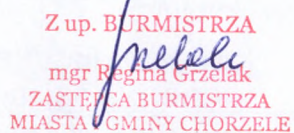 Z up. BURMISTRZA
mgr Regina Grzelak
ZASTĘPCA BURMISTRZA
MIASTA GMINY CHORZELE